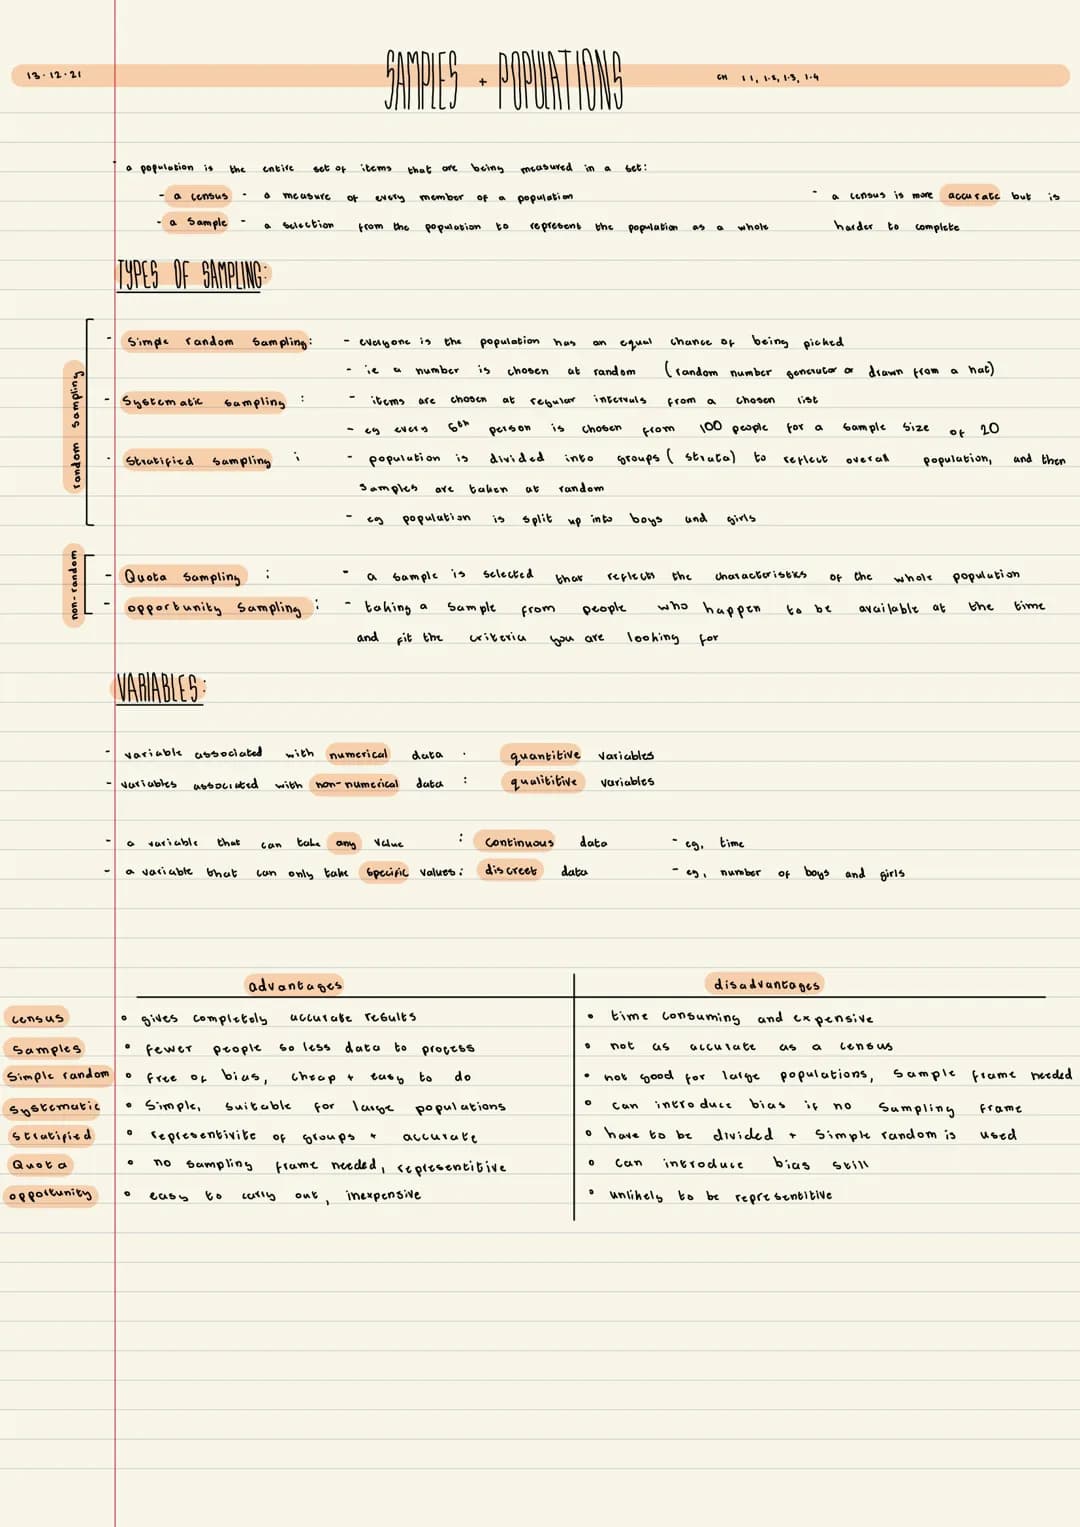 13.12.21
SAMPLES + POPULATIONS
CH 1.1, 1.2, 1.3, 1.4
a population is the entire set of items that are being measured in a set:
- a census - a measure of every member of a population
- a sample - a selection from the population to represent the population as a whole
- a census is more accurate but is
harder to complete
TYPES OF SAMPLING:
random sampling
- Simple random sampling: - everyone is the population has an equal chance of being picked
- ie a number is chosen at random (random number generator or drawn from a hat)
- Systematic sampling : - items are chosen at regular intervals from a chosen list
- eg every 5th person is chosen from 100 people for a sample size of 20
- Stratified sampling : - population is divided into groups (strata) to reflect overall population, and then
samples are taken at random
- eg population is split up into boys and girls
non-random
- Quota sampling : - a sample is selected that reflects the characteristics of the whole population
- opportunity sampling : - taking a sample from people who happen to be available at the time
and fit the criteria you are looking for
VARIABLES:
- variable associated with numerical data : quantitive variables
- variables associated with non-numerical data : qualititive variables
- a variable that can take any value : continuous data - eg, time
- a variable that can only take specific values: discreet data - eg, number of boys and girls
advantages disadvantages
census • gives completely accurate results • time consuming and expensive
samples • fewer people so less data to process • not as accurate as a census
simple random • free of bias, cheap + easy to do • not good for large populations, sample frame needed
systematic • Simple, suitable for large populations • can introduce bias if no sampling frame
stratified • representivite of groups + accurate • have to be divided + simple random is used
Quota • no sampling frame needed, representitive • can introduce bias still
opportunity • easy to carry out, inexpensive • unlikely to be representitive